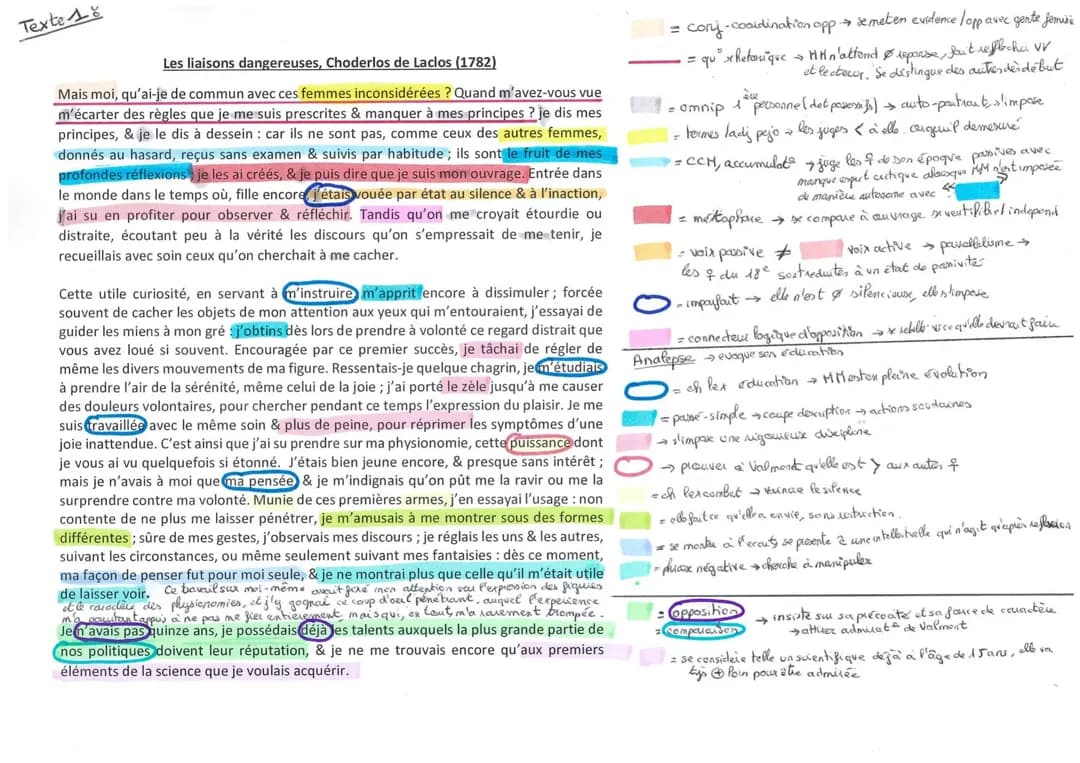 Texte 1 :
Les liaisons dangereuses, Choderlos de Laclos (1782)
Mais moi, qu'ai-je de commun avec ces femmes inconsidérées ? Quand m'avez-vous vue
m'écarter des règles que je me suis prescrites & manquer à mes principes ? je dis mes
principes, & je le dis à dessein : car ils ne sont pas, comme ceux des autres femmes,
donnés au hasard, reçus sans examen & suivis par habitude ; ils sont le fruit de mes
profondes réflexions ; je les ai créés, & je puis dire que je suis mon ouvrage. Entrée dans
le monde dans le temps où, fille encore, j'étais vouée par état au silence & à l'inaction,
j'ai su en profiter pour observer & réfléchir. Tandis qu'on me croyait étourdie ou
distraite, écoutant peu à la vérité les discours qu'on s'empressait de me tenir, je
recueillais avec soin ceux qu'on cherchait à me cacher.
Cette utile curiosité, en servant à m'instruire, m'apprit encore à dissimuler ; forcée
souvent de cacher les objets de mon attention aux yeux qui m'entouraient, j'essayai de
guider les miens à mon gré ; j'obtins dès lors de prendre à volonté ce regard distrait que
vous avez loué si souvent. Encouragée par ce premier succès, je tâchai de régler de
même les divers mouvements de ma figure. Ressentais-je quelque chagrin, je m'étudiais
à prendre l'air de la sérénité, même celui de la joie ; j'ai porté le zèle jusqu'à me causer
des douleurs volontaires, pour chercher pendant ce temps l'expression du plaisir. Je me
suis travaillée avec le même soin & plus de peine, pour réprimer les symptômes d'une
joie inattendue. C'est ainsi que j'ai su prendre sur ma physionomie, cette puissance dont
je vous ai vu quelquefois si étonné. J'étais bien jeune encore, & presque sans intérêt ;
mais je n'avais à moi que ma pensée, & je m'indignais qu'on pût me la ravir ou me la
surprendre contre ma volonté. Munie de ces premières armes, j'en essayai l'usage : non
contente de ne plus me laisser pénétrer, je m'amusais à me montrer sous des formes
différentes ; sûre de mes gestes, j'observais mes discours ; je réglais les uns & les autres,
suivant les circonstances, ou même seulement suivant mes fantaisies : dès ce moment,
ma façon de penser fut pour moi seule, & je ne montrai plus que celle qu'il m'était utile
de laisser voir. Ce travail sur moi-même avait fixé mon attention sur l'expression des figures
et le caractère des physionomies, et j'y gagnai ce coup d'oeil pénétrant, auquel l'expérience
m'a pourtant appris à ne pas me fier entièrement, mais qui, en tout, m'a rarement trompée.
Je n'avais pas quinze ans, je possédais déjà les talents auxquels la plus grande partie de
nos politiques doivent leur réputation, & je ne me trouvais encore qu'aux premiers
éléments de la science que je voulais acquérir.
= conj-coordination opp → se met en evidence / opp avec gente féminine
= qu° rhetorique → MM n'attend Ø reponse, fait reflechir VV
et lecteur. Se distingue des autres dès debut
= omnip 1ère personne (det possessifs) → auto-portrait, s'impose
= termes /adj pejo → les juges < à elle. orgueuil demesuré
= CCM, accumulat° → juge les ♀ de son époque passives avec
manque esprit critique alors que MM n'est imposée
de manière autonome avec
= métaphore → se compare à ouvrage
= voix passive ≠ voix active → parallélisme →
les ♀ du 18e sont reduites à un état de passivité
= imparfait → elle n'est Ø silencieuse, elle s'impose
= connecteur logique d'opposition → se rebelle
Analepse → evoque son éducation
= ch lex education → MM est en pleine évolution
= passé-simple → coupe description → actions soudaines
→ s'impose une rigoureuse discipline
→ prouver à Valmont qu'elle est > aux autres ♀
= ch lex combat → vaincre le silence
= elle fait ce qu'elle a envie, sans restriction.
= se montre à l'ecoute, se presente à une intellectuelle qui n'agit qu'après reflexion
= phrase négative → cherche à manipuler
= opposition → insiste sur sa précocité et sa force de caractère
= comparaison → attirer admirat° de Valmont
= se considère telle un scientifique déjà à l'âge de 15 ans, elle va
tjs + loin pour être admirée